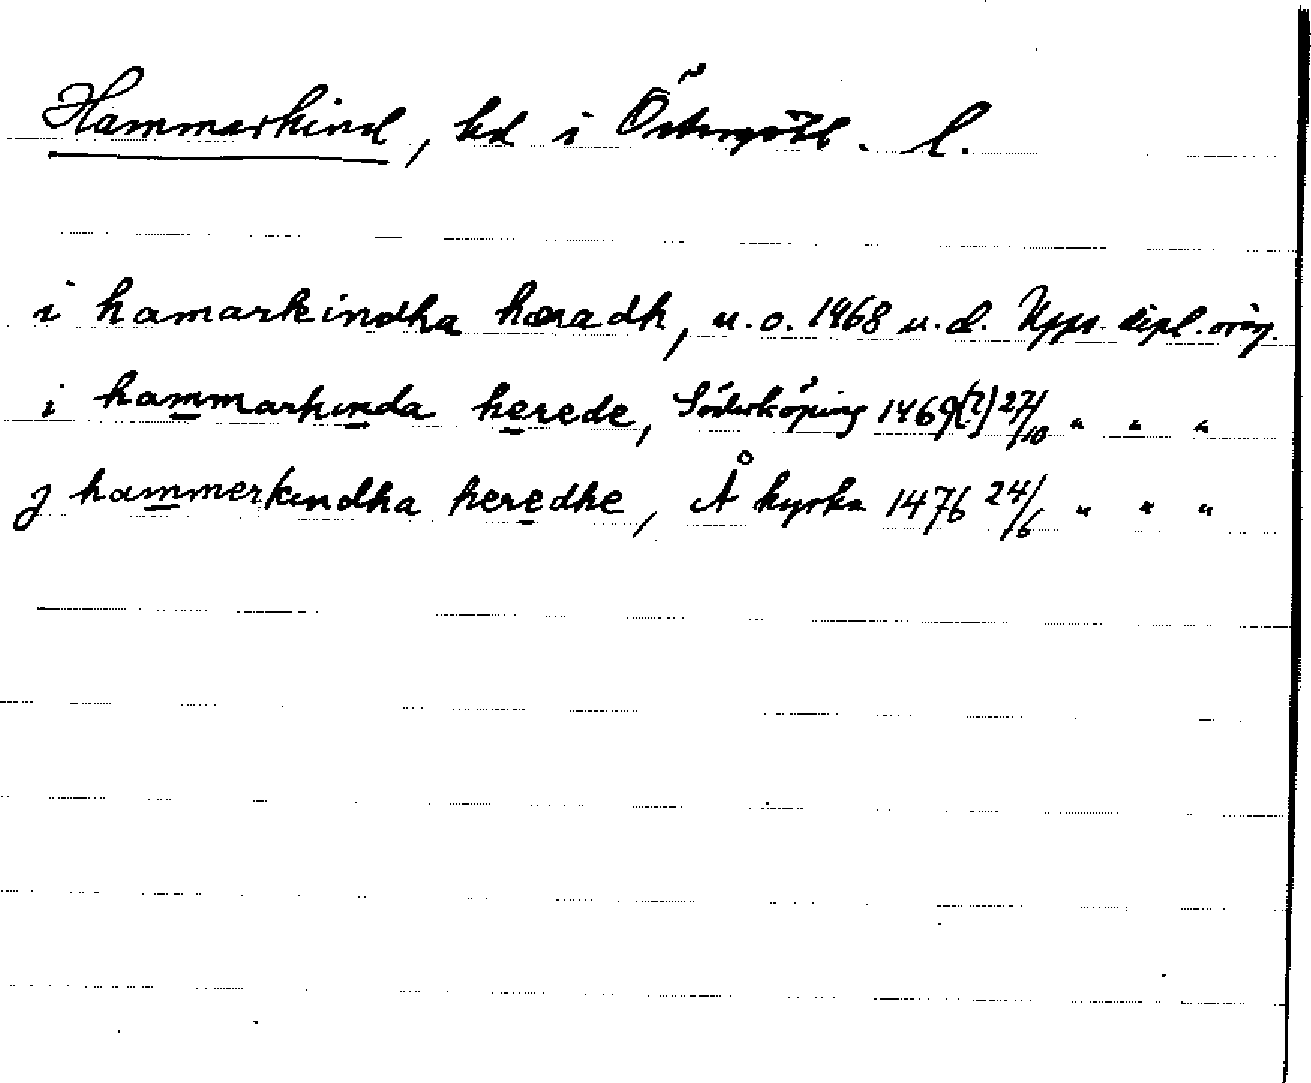 Hammarkind, hd i Östergötl. l.
i hamarkindha hæradh, u.o. 1468 u.d. Upps. dipl. orig.
i hammarkinda herede, Söderköping 1469(?) 27/10 " " "
j hammerkindha heredhe, Å kyrka 1476 24/6 " " "